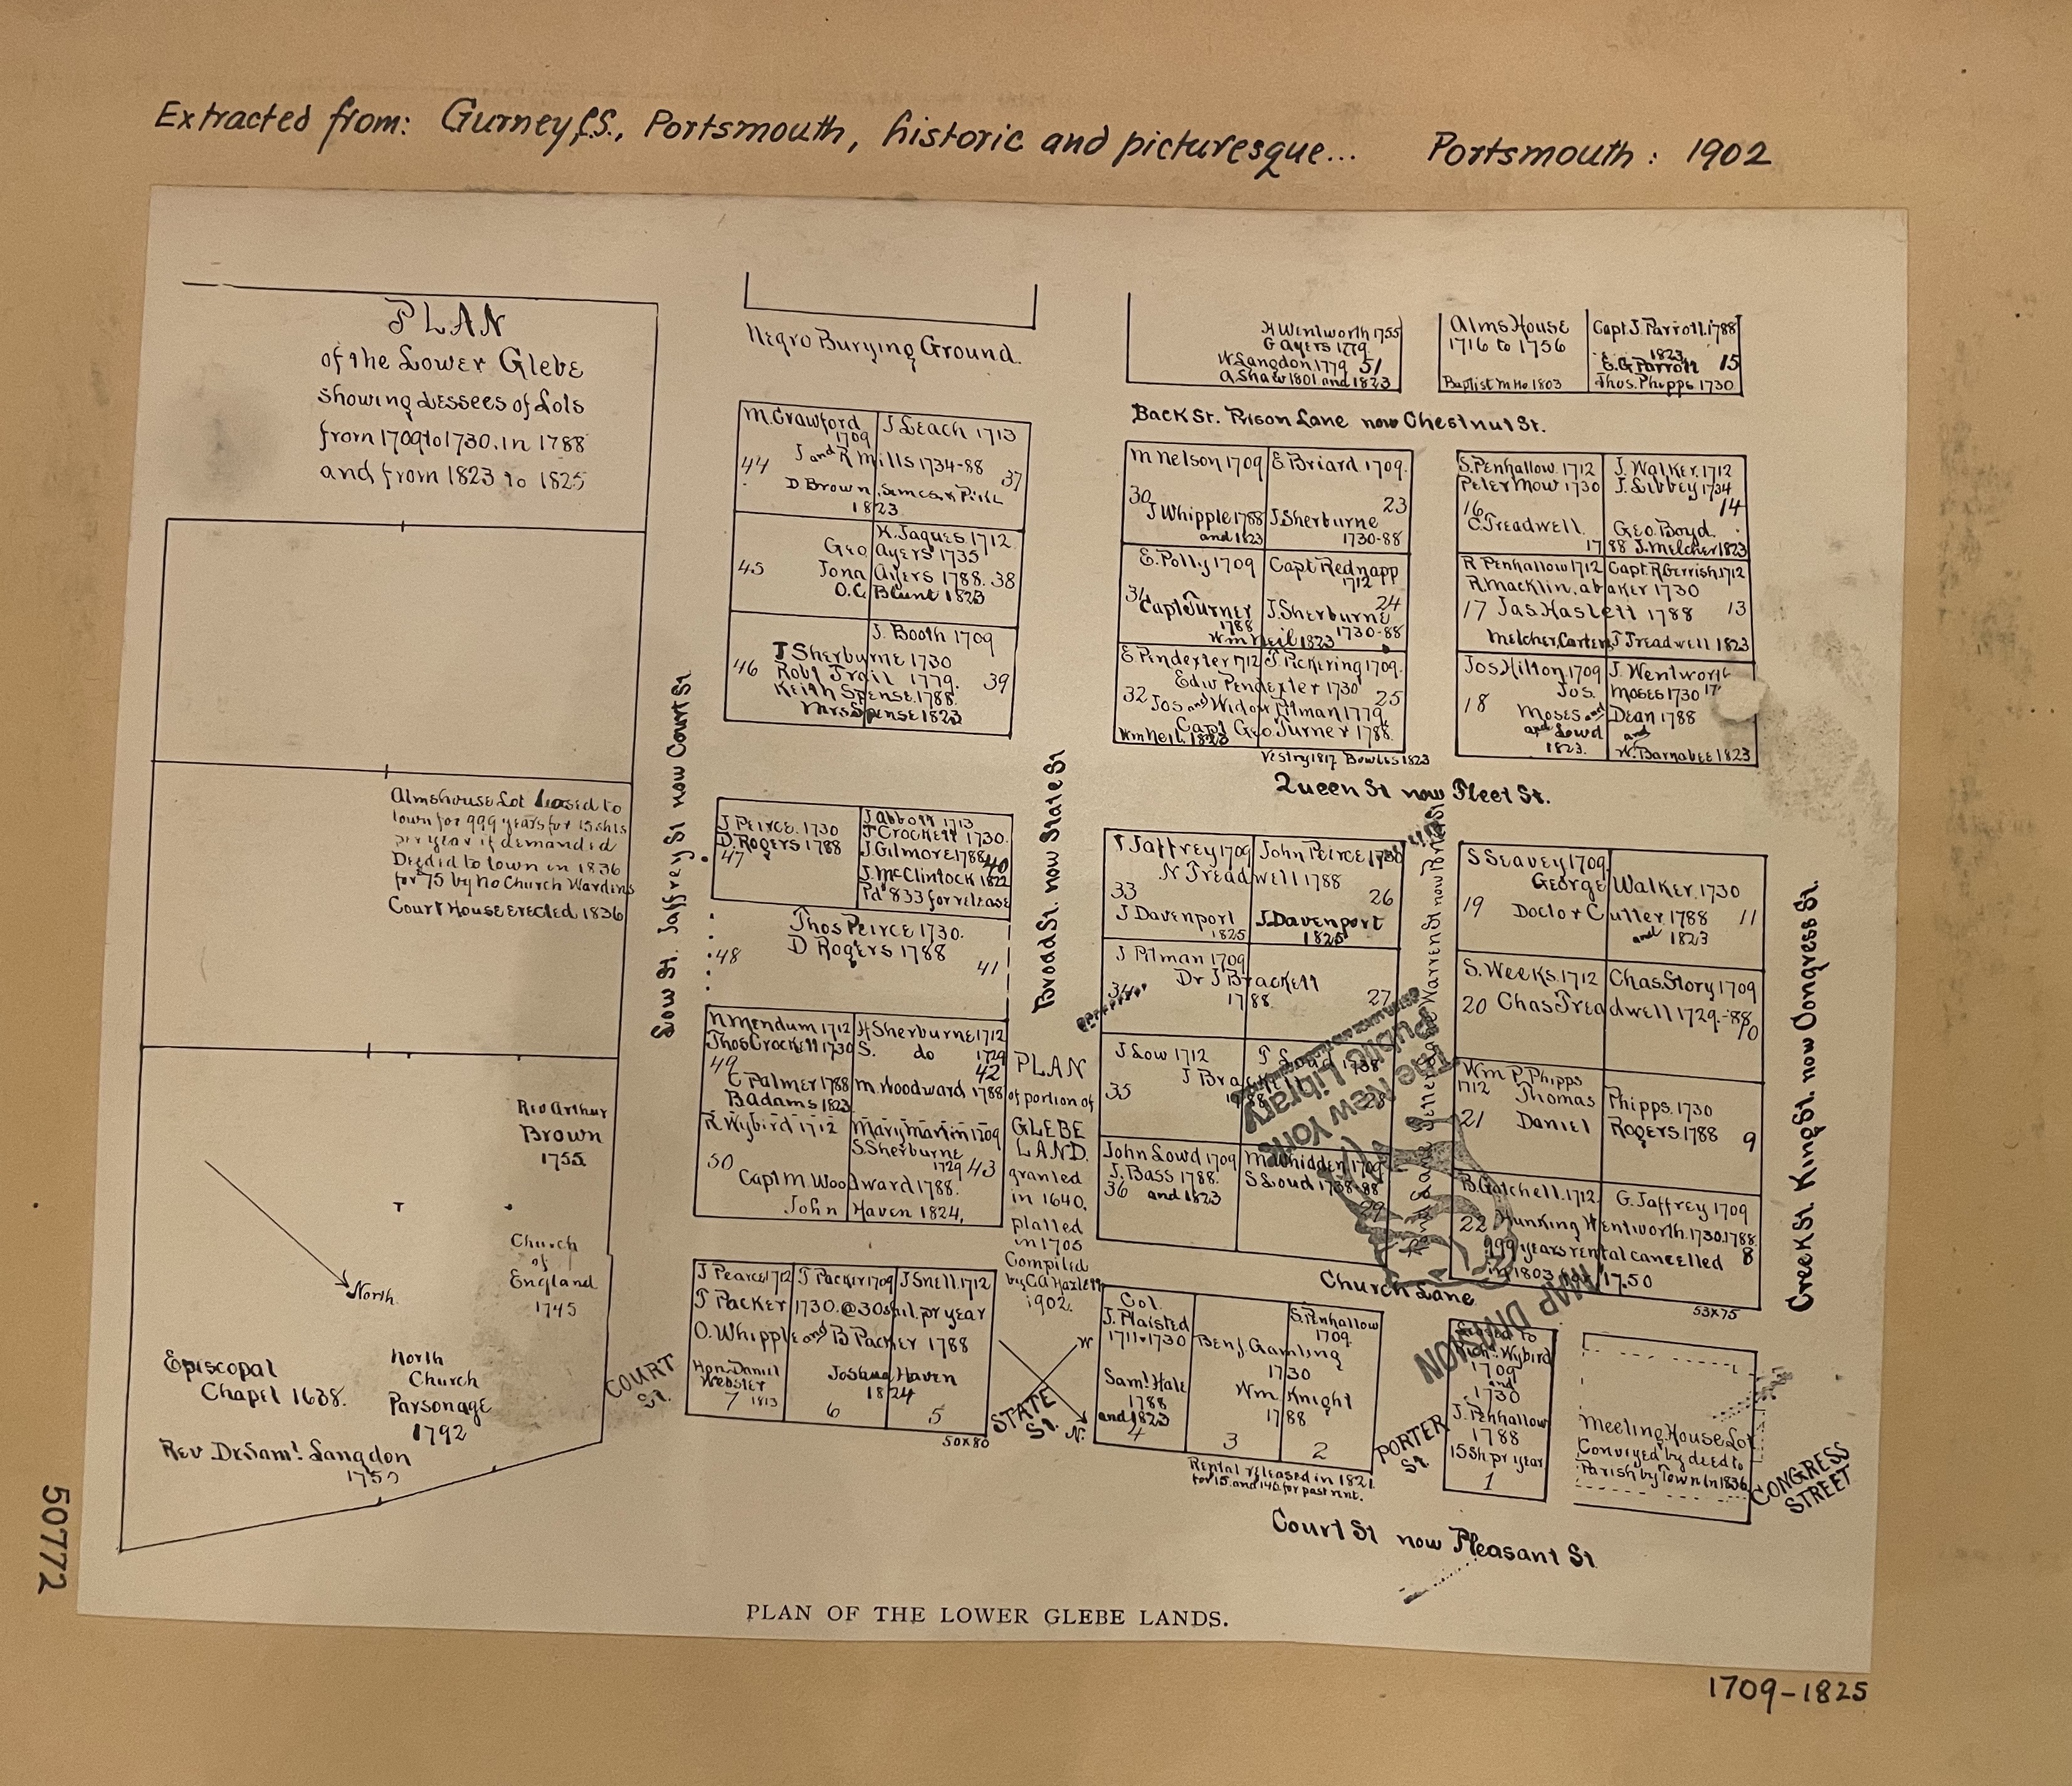 Extracted from: Gurney, C.S., Portsmouth, historic and picturesque... Portsmouth: 1902
PLAN
of the Lower Glebe
showing Lessees of Lots
from 1709 to 1730. in 1788
and from 1823 to 1825
Almshouse Lot leased to
town for 999 years for 15 shls
per year if demanded
Deeded to town in 1836
for 75 by No Church Wardens
Court House erected 1836
Rev Arthur
Brown
1755
Church
of
England
1745
North
Episcopal
Chapel 1638.
North
Church
Parsonage
1792
Rev Dr Saml. Langdon
Low St. Jaffrey St now Court St.
COURT
St.
Negro Burying Ground.
M. Crawford
1709
J Leach 1713
J and R Mills 1734-88
44
37
D Brown, Simes & Pike
1823
K. Jaques 1712
Geo Ayers 1735
45 Jona Ayers 1788. 38
O.C. Blunt 1823
J. Booth 1709
J Sherburne 1730
46 Robt Trail 1779. 39
Keith Spense 1788.
Mrs Spense 1823
J Peirce. 1730
D. Rogers 1788
47
J Abbott 1713
J Crockett 1730.
J Gilmore 1788
40
J. McClintock 1822
Pd 833 for release
Thos Peirce 1730.
D Rogers 1788
48
41
N Mendum 1712
Thos Crockett 1730
49
E Palmer 1788
B Adams 1823
H Sherburne 1712
S. do 1729
42
M. Woodward 1788
R Wybird 1712
Mary Martin 1709
S. Sherburne
1729
50
43
Capt M. Woodward 1788.
John Haven 1824,
J Pearce 1712
T Packer 1709
J Snell. 1712
T Packer 1730. @ 30 shil. pr year
O. Whipple and B Packer 1788
Hon. Daniel
Webster
7 1813
Joshua Haven
1824
6
5
50x80
Broad St. now State St
PLAN
of portion of
GLEBE
LAND.
granted
in 1640.
platted
in 1705
Compiled
by C.A. Hazlett
1902.
W
N.
STATE
St.
H Wentworth 1755
G Ayers 1779.
W Langdon 1779 51
A Shaw 1801 and 1823
Alms House
1716 to 1756
Baptist M Ho. 1803
Capt. J. Parrott. 1788
1823
E.G Parrott 15
Thos. Phipps 1730
Back St. Prison Lane now Chestnut St.
M Nelson 1709
E. Briard 1709.
30
23
J Whipple 1788
and 1823
J Sherburne
1730-88
E. Polly 1709
Capt Rednapp
1712
24
Capt Turner
1788
J. Sherburne
1730-88
Wm Neil 1823
E Pendexter 1712
J. Pickering 1709.
Edw Pendexter 1730
32
25
Jos and Widow Pitman 1779
Capt Geo Turner 1788.
Wm Neil. 1823
Vestry 1817 Bowles 1823
S. Penhallow. 1712
Peter Mow 1730
16
C. Treadwell.
J. Walker. 1712
J. Libbey 1734
14
Geo. Boyd.
1788 J. Melcher 1823
R Penhallow 1712
Capt. R Gerrish. 1712
R. Macklin, a baker 1730
17 Jas. Haslett 1788 13
Melcher, Carter, J Treadwell 1823
Jos Hilton 1709
J. Wentworth
Jos. Moses 1730
18
Moses and Dean 1788
and Lowd
1823.
and
W. Barnabee 1823
Queen St now Fleet St.
T Jaffrey 1709
John Peirce 1730
N Treadwell 1788
33
26
J Davenport
1825
J. Davenport
1825
J Pitman 1709
Dr J Brackett
1788
34
27
J Low 1712
35
John Lowd 1709
M. Whidden 1709
J. Bass 1788.
36 and 1823
S Loud 1738-88
29
The New York
Public Library
MAP DIVISION
S Seavey 1709
George Walker. 1730
19 Doctor Cutter 1788 11
and 1823
S. Weeks. 1712
Chas. Story 1709
20 Chas Treadwell 1729.-88
10
Wm P. Phipps
1712
Thomas Phipps. 1730
21 Daniel Rogers. 1788 9
B. Gatchell. 1712
G. Jaffrey 1709
22 Hunking Wentworth. 1730. 1788
999 years rental cancelled 8
in 1803 for 17.50
53x75
Church Lane
Creek St. King St. now Congress St.
Col.
J. Plaisted
1711-1730
Saml. Hale
1788
and 1823
4
S. Penhallow
1709.
Benj. Gambling
1730
Wm. Knight
1788
3
2
Rental released in 1821
for 15. and 140. for past rent.
PORTER
St.
Leased to
Rich. Wybird
1709
and
1730
J. Penhallow
1788
15 Sh pr year
1
Meeting House Lot
Conveyed by deed to
Parish by Town in 1836
CONGRESS
STREET
Court St now Pleasant St
PLAN OF THE LOWER GLEBE LANDS.
1709-1825
507772